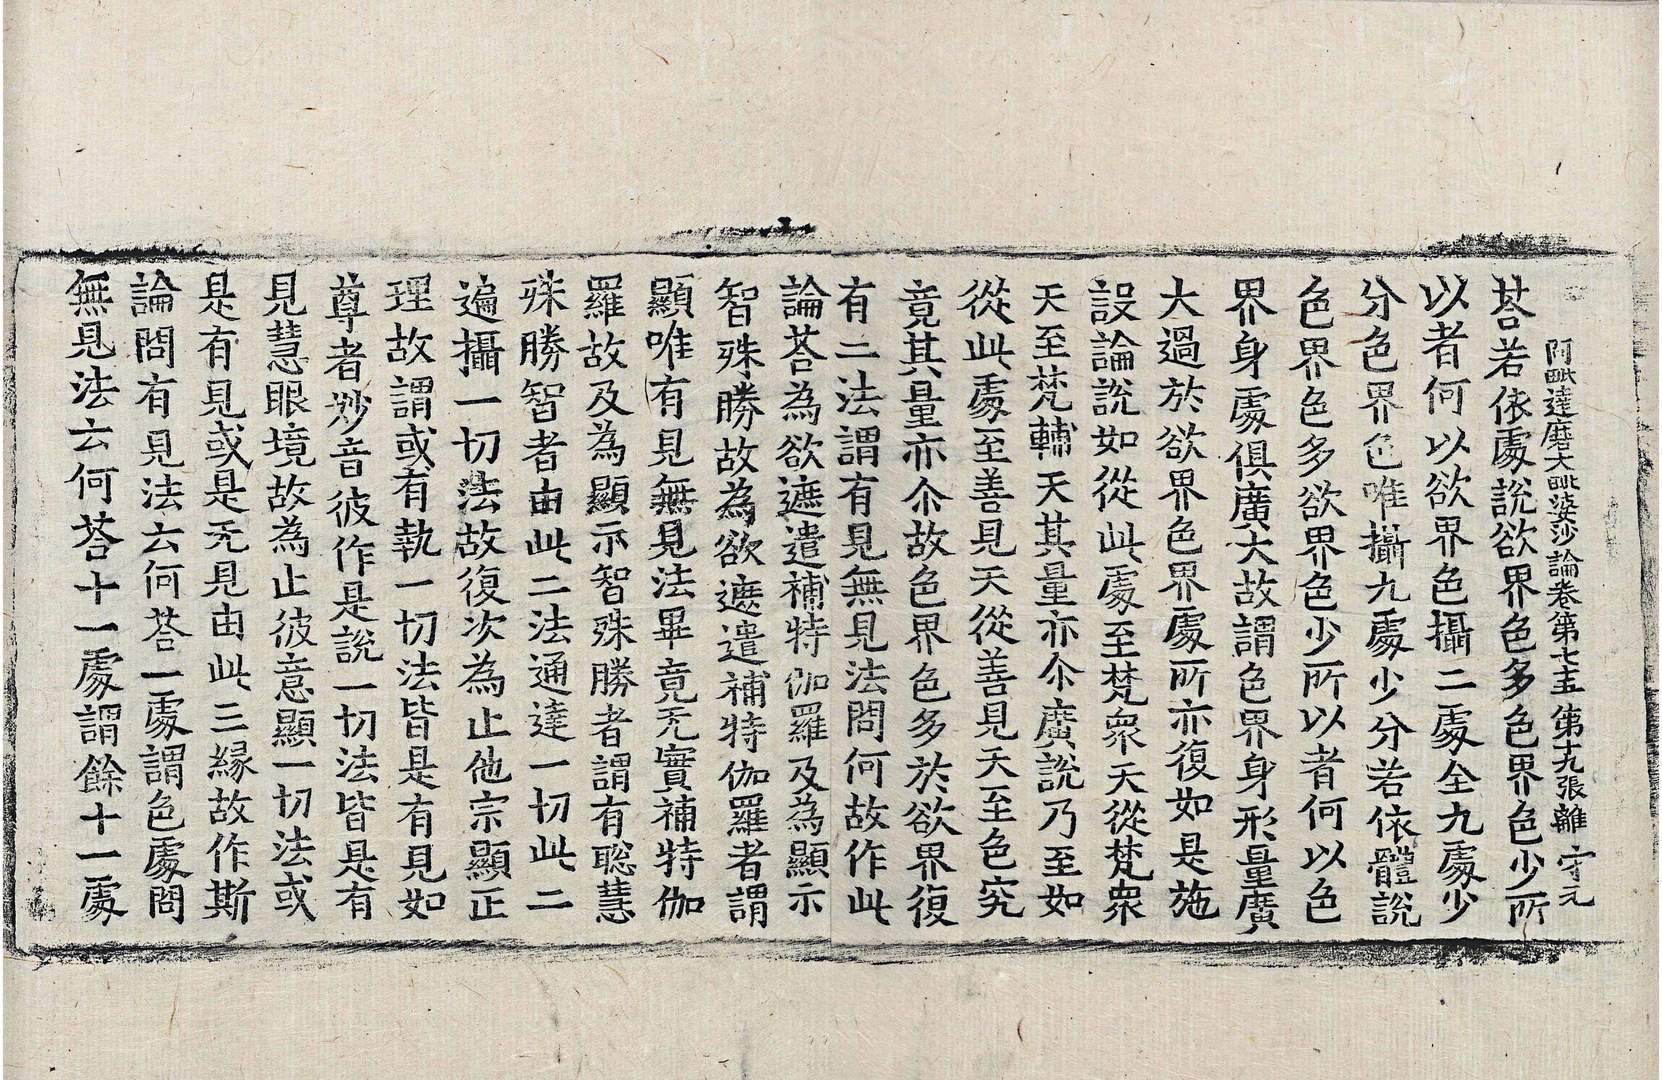 阿毗達磨大毗婆沙論卷第七十五 第十九張 離 守元
荅若依處說欲界色多色界色少所
以者何以欲界色攝二處全九處少
分色界色唯攝九處少分若依體說
色界色多欲界色少所以者何以色
界身處俱廣大故謂色界身形量廣
大過於欲界色界處所亦復如是施
設論說如從此處至梵衆天從梵衆
天至梵輔天其量亦尒廣說乃至如
從此處至善見天從善見天至色究
竟其量亦尒故色界色多於欲界復
有二法謂有見無見法問何故作此
論荅為欲遮遣補特伽羅及為顯示
智殊勝故為欲遮遣補特伽羅者謂
顯唯有見無見法畢竟无實補特伽
羅故及為顯示智殊勝者謂有聡慧
殊勝智者由此二法通達一切此二
遍攝一切法故復次為止他宗顯正
理故謂或有執一切法皆是有見如
尊者妙音彼作是說一切法皆是有
見慧眼境故為止彼意顯一切法或
是有見或是无見由此三緣故作斯
論問有見法云何荅一處謂色處問
無見法云何荅十一處謂餘十一處